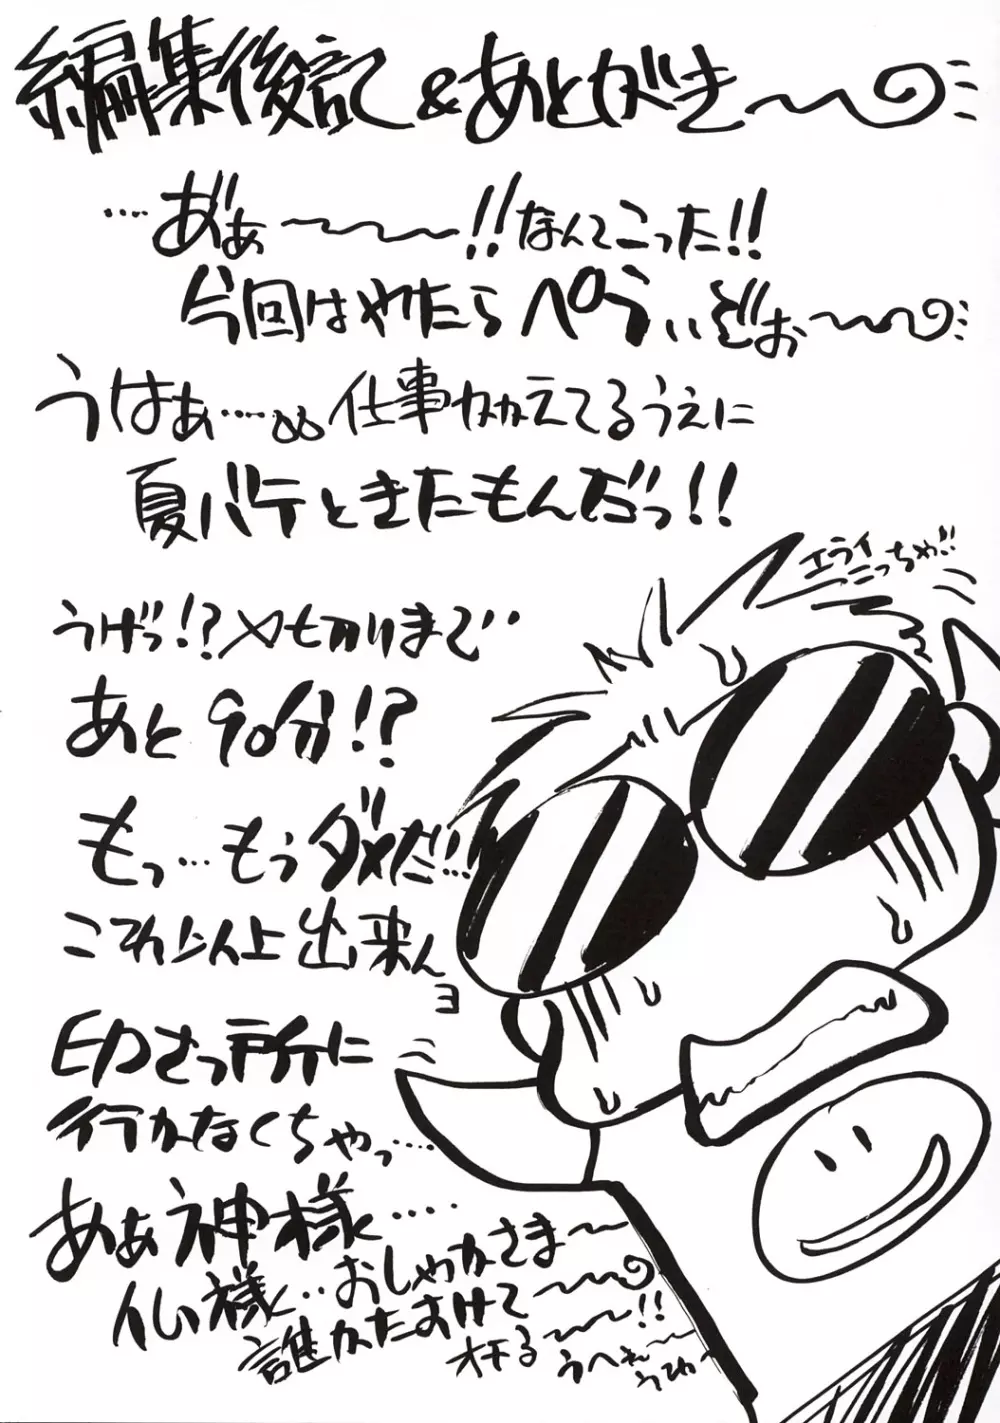 編集後記&あとがき〜〜
‥‥あ゛ぁ〜〜〜!!なんてこった!!
今回はやたらペラぃぞぉ〜〜〜
うはぁ‥‥。。仕事かかえてるうえに
夏バテときたもんだっ!!
エライ
こっちゃ!!
うげっ!?〆切りまで‥
あと90分!?
もっ…もうダメだ!!
これ以上出来ん
ヨ
印さつ所に
行かなくちゃっ‥‥
あぁ神様‥‥
仏様‥おしゃかさま〜〜
誰かたすけて〜〜〜
オチる〜〜!!
うへぇ〜〜